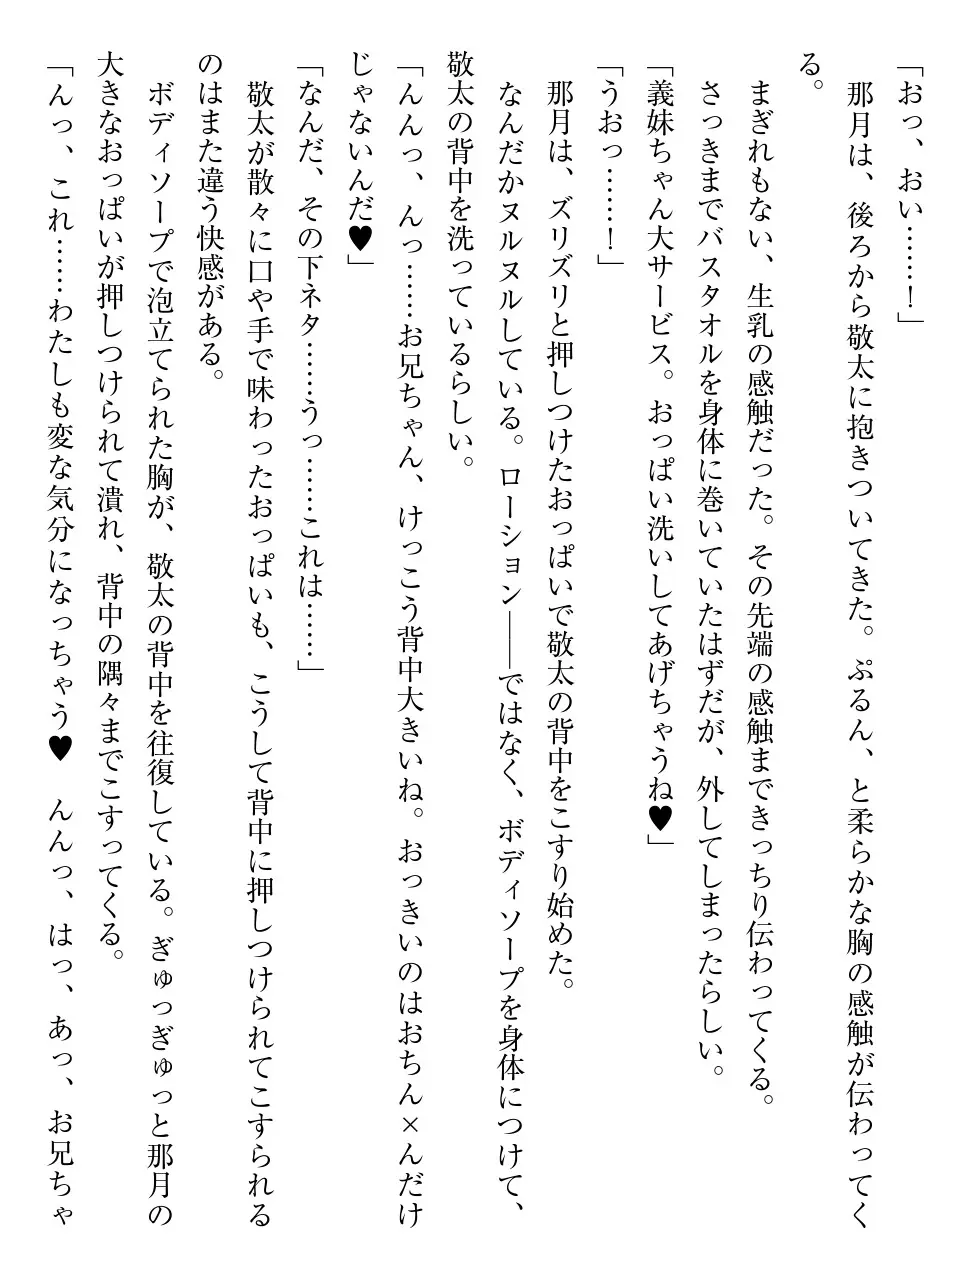 「おっ、おい……！」
　那月は、後ろから敬太に抱きついてきた。ぷるん、と柔らかな胸の感触が伝わってく
る。
　まぎれもない、生乳の感触だった。その先端の感触まできっちり伝わってくる。
　さっきまでバスタオルを身体に巻いていたはずだが、外してしまったらしい。
「義妹ちゃん大サービス。おっぱい洗いしてあげちゃうね♥」
「うおっ……！」
　那月は、ズリズリと押しつけたおっぱいで敬太の背中をこすり始めた。
　なんだかヌルヌルしている。ローション――ではなく、ボディソープを身体につけて、
敬太の背中を洗っているらしい。
「んんっ、んっ……お兄ちゃん、けっこう背中大きいね。おっきいのはおちん×んだけ
じゃないんだ♥」
「なんだ、その下ネタ……うっ……これは……」
　敬太が散々に口や手で味わったおっぱいも、こうして背中に押しつけられてこすられる
のはまた違う快感がある。
　ボディソープで泡立てられた胸が、敬太の背中を往復している。ぎゅっぎゅっと那月の
大きなおっぱいが押しつけられて潰れ、背中の隅々までこすってくる。
「んっ、これ……わたしも変な気分になっちゃう♥　んんっ、はっ、あっ、お兄ちゃ